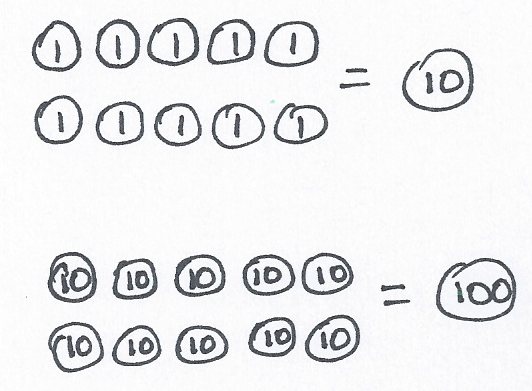 1 1 1 1 1
1 1 1 1 1 = 10
10 10 10 10 10
10 10 10 10 10 = 100